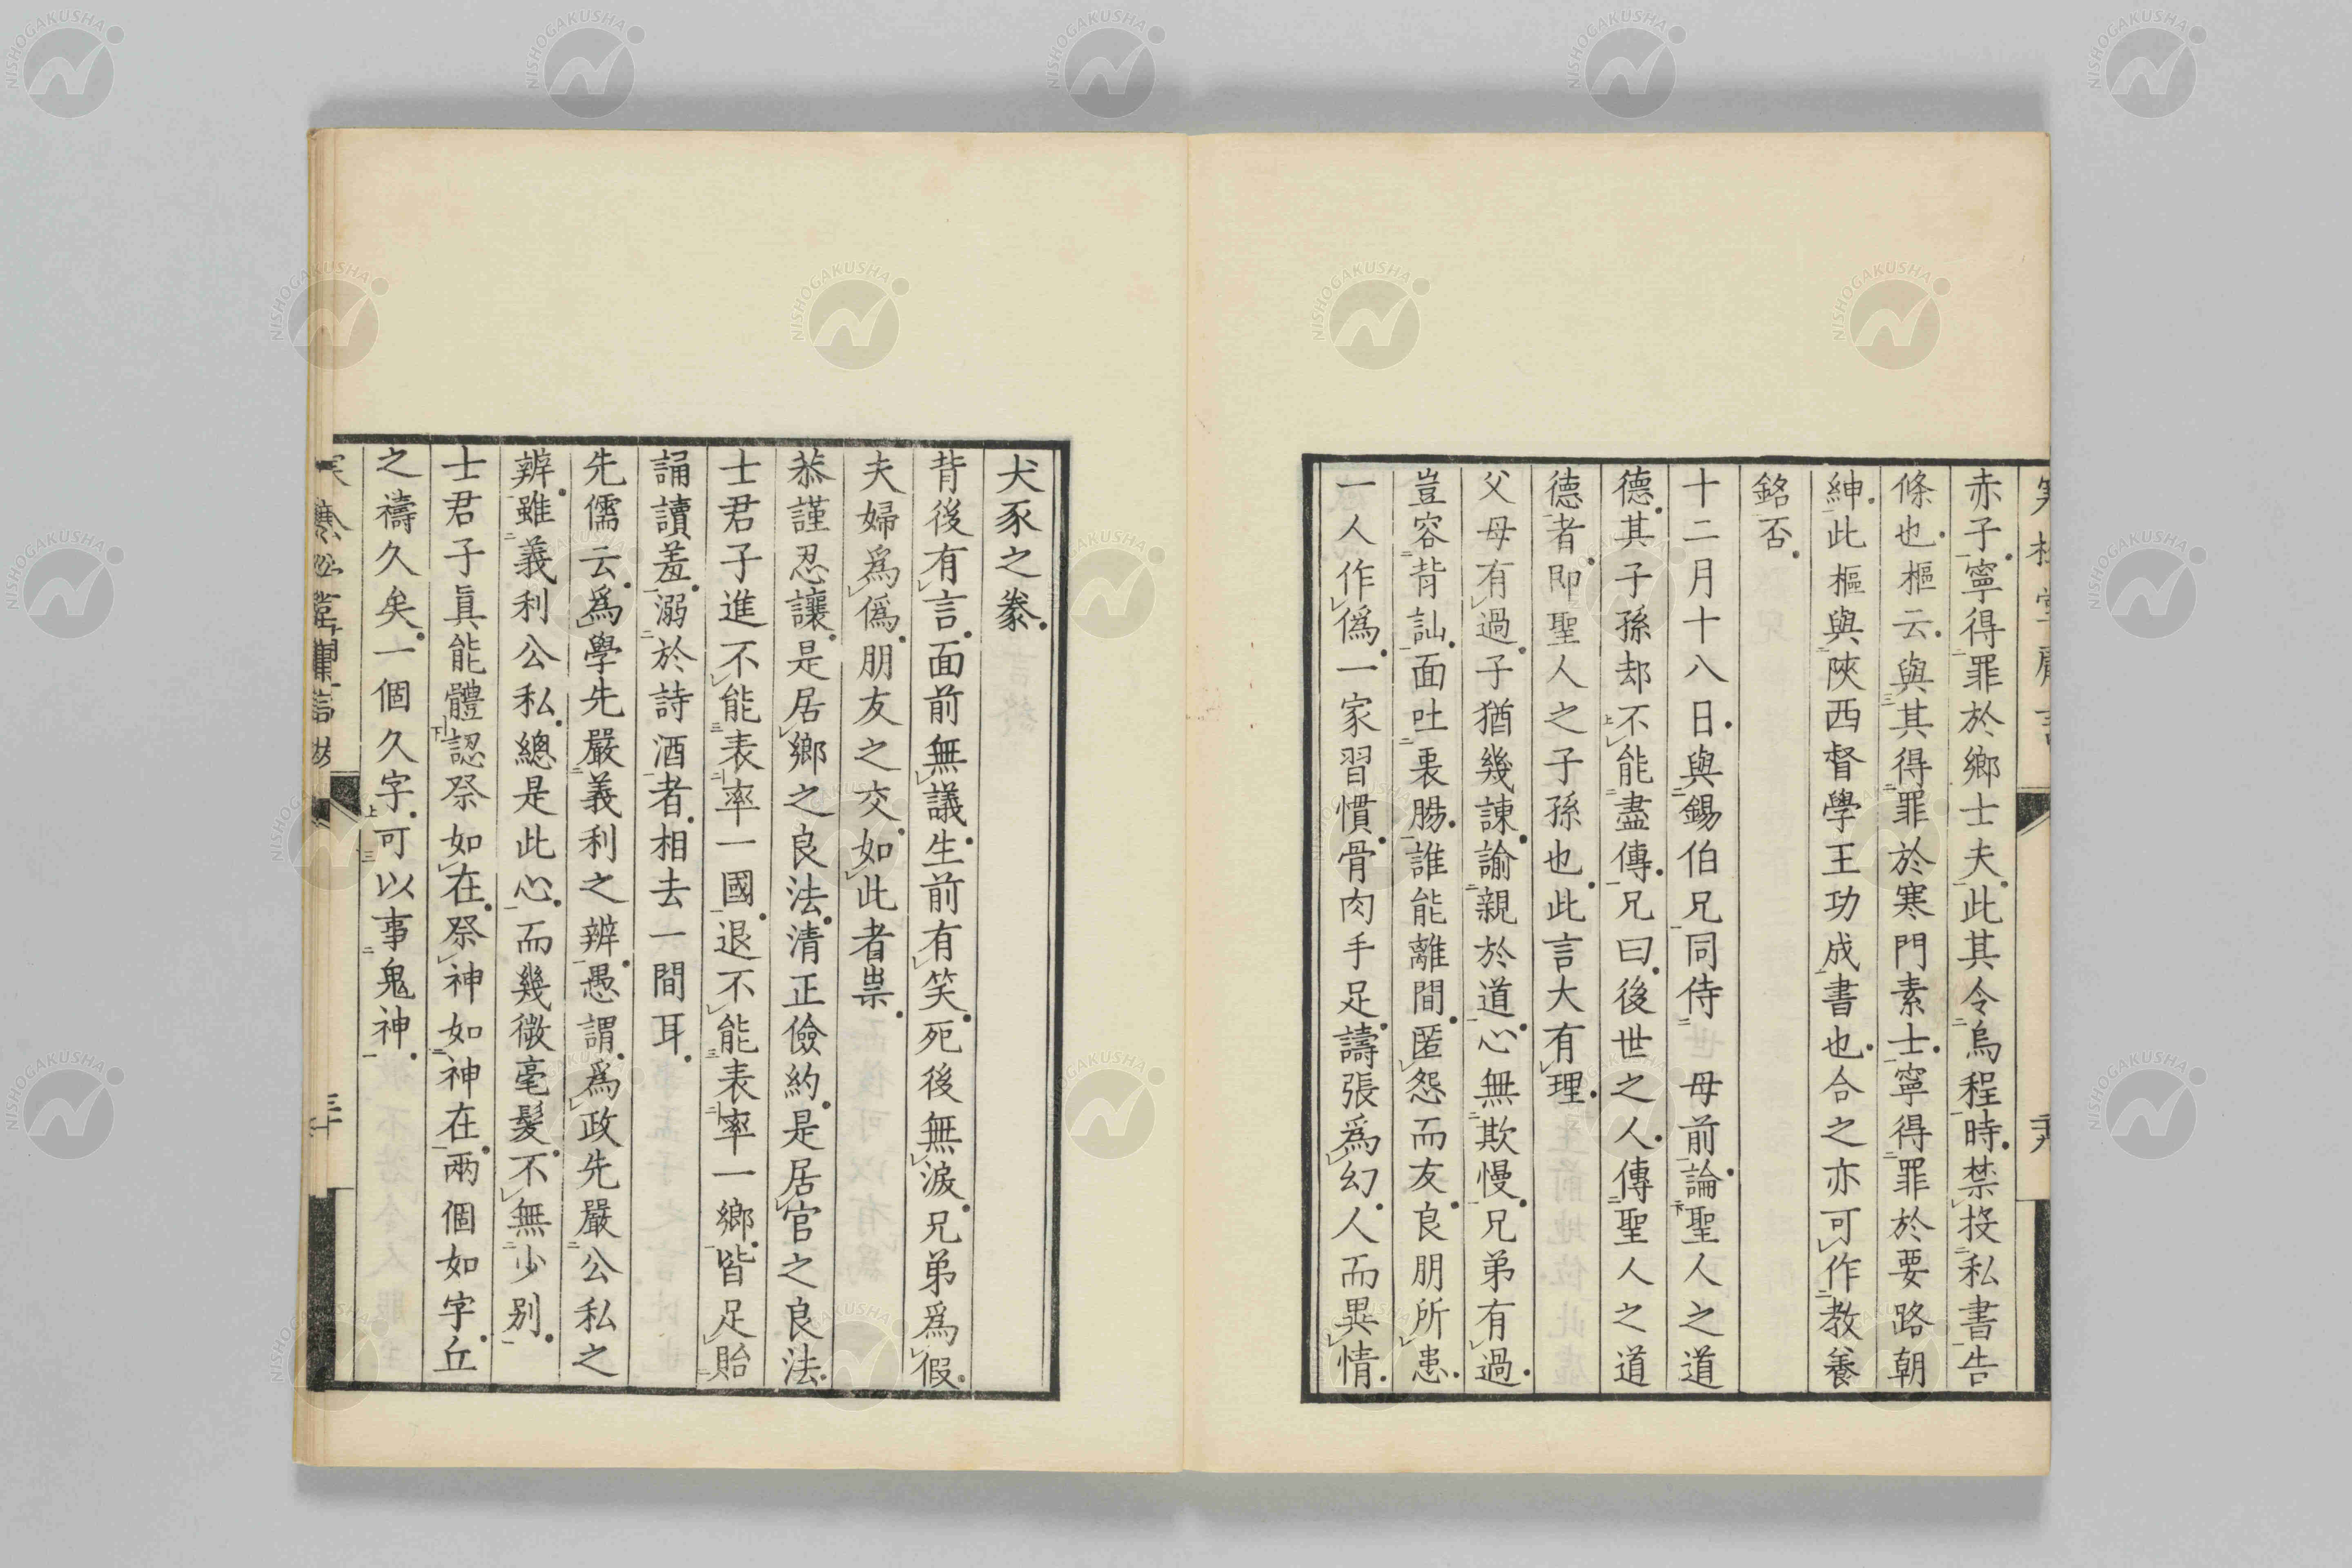 赤子寧得罪於鄉士夫此其令烏程時禁投私書告
條也樞云與其得罪於寒門素士寧得罪於要路朝
紳此樞與陝西督學王功成書也合之亦可作教養
銘否
十二月十八日與錫伯兄同侍母前論聖人之道
德其子孫却不能盡傳兄曰後世之人傳聖人之道
德者即聖人之子孫也此言大有理
父母有過子猶幾諫諭親於道心無欺慢兄弟有過
豈容背訕面吐裏腸誰能離間匿怨而友良朋所恚
一人作僞一家習慣骨肉手足譸張爲幻人而異情
犬豕之豢
背後有言面前無議生前有笑死後無淚兄弟爲假
夫婦爲僞朋友之交如此者祟
恭謹忍讓是居鄉之良法清正儉約是居官之良法
士君子進不能表率一國退不能表率一鄉皆足貽
誦讀羞溺於詩酒者相去一間耳
先儒云爲學先嚴義利之辨愚謂爲政先嚴公私之
辨雖義利公私總是此心而幾微毫髮不無少别
士君子眞能體認祭如在祭神如神在兩個如字丘
之禱久矣一個久字可以事鬼神
三十
NISHOGAKUSHA